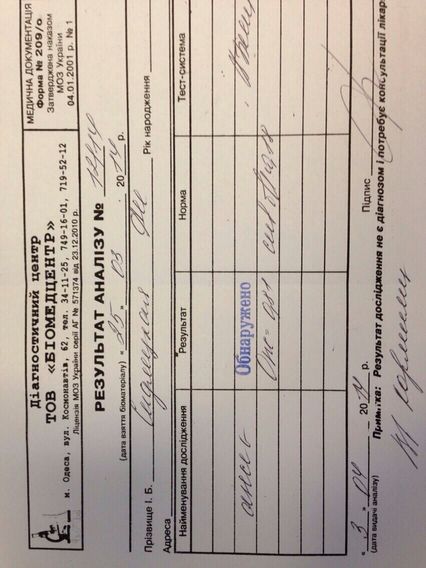 Діагностичний центр
ТОВ «БІОМЕДЦЕНТР»
м. Одеса, вул. Космонавтів, 62, тел. 34-11-25, 749-16-01, 719-52-12
Ліцензія МОЗ України серії АГ № 571374 від 23.12.2010 р.
МЕДИЧНА ДОКУМЕНТАЦІЯ
Форма № 209/о
Затверджена наказом
МОЗ України
04.01.2001 р. № 1
РЕЗУЛЬТАТ АНАЛІЗУ №
(дата взяття біоматеріалу) « 25 » 03 2014 р.
Прізвище І. Б. Рік народження
Адреса
Найменування дослідження Результат Норма Тест-система
Обнаружено
« 3 » 04 2014 р.
(дата видачі аналізу)
Підпис
Примітка: Результат дослідження не є діагнозом і потребує консультації лікар